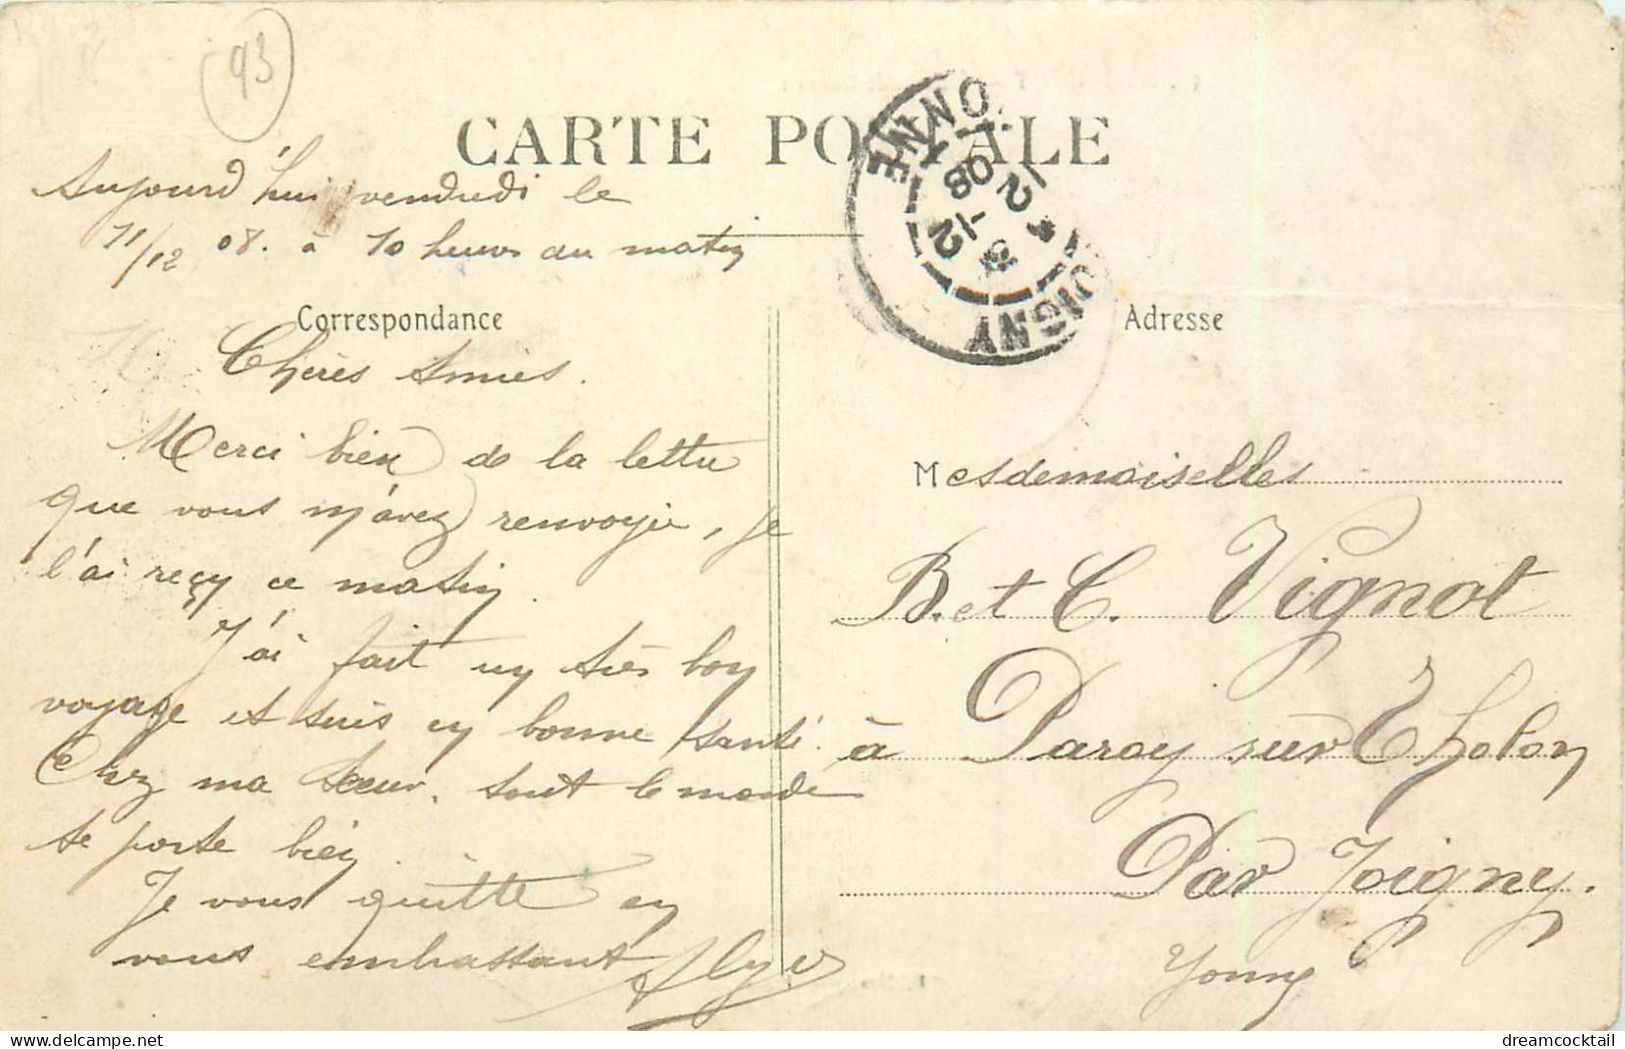 93
CARTE POSTALE
Aujourd'hui vendredi le
11/12 08. à 10 heures du matin
Correspondance
Chères Amies.
Merci bien de la lettre
que vous m'avez renvoyée, je
l'ai reçu ce matin.
J'ai fait un très bon
voyage et suis en bonne santé.
Chez ma Sœur, tout le monde
se porte bien.
Je vous quitte en
vous embrassant
JOIGNY
YONNE
12-12
08
Adresse
Mesdemoiselles
B. et C. Vignot
à Paroy sur Tholon
Par Joigny.
Yonne
dreamcocktail